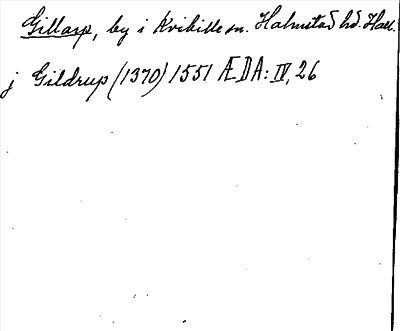 Gillarp, by i Kvibille sn. Halmstad hd. Hall.
j Gildrup (1370) 1551 ÆDA: IV, 26